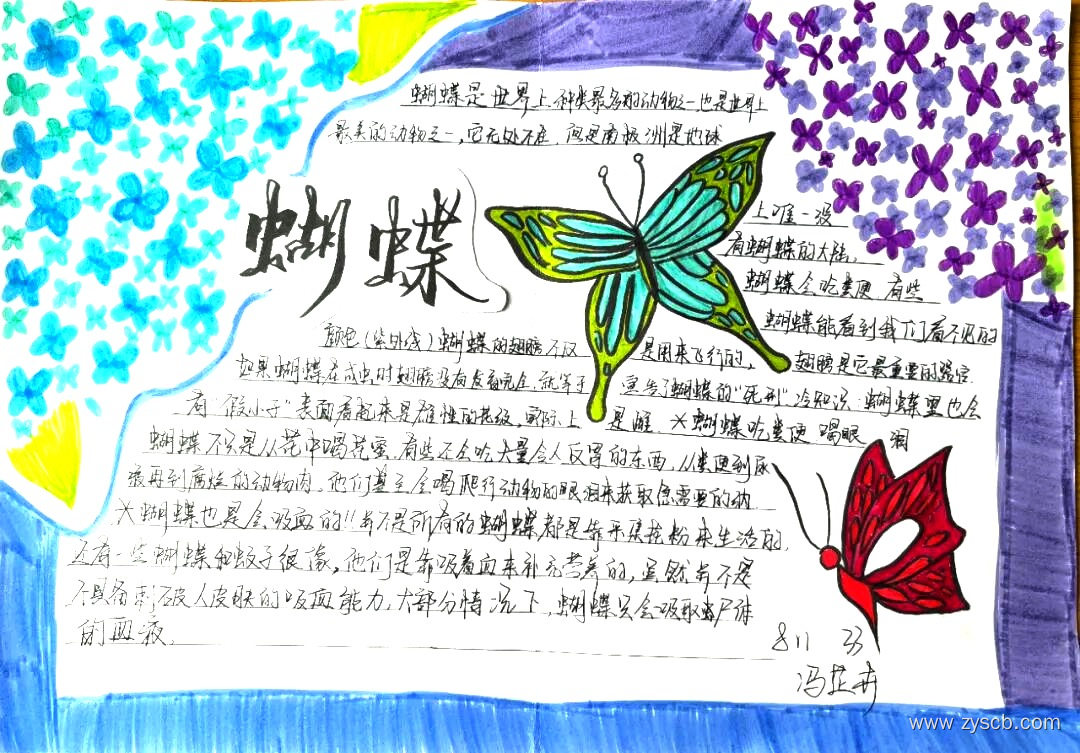 蝴蝶是世界上种类最多的动物之一也是世界上
最美的动物之一,它无处不在,但是南极洲是地球
蝴蝶
上唯一没
有蝴蝶的大陆。
蝴蝶会吃粪便 有些
蝴蝶能看到我们看不见的
颜色(紫外线)蝴蝶的翅膀不仅 是用来飞行的, 翅膀是它最重要的器官
如果蝴蝶在成虫时翅膀没有发育完全,就等于 宣告了蝴蝶的“死刑”冷知识:蝴蝶里也会
有“假小子”表面看起来是雄性的花纹,实际上 是雌 *蝴蝶吃粪便 喝眼 泪
蝴蝶不只是从花中喝花蜜,有些还会吃大量令人反胃的东西,从粪便到尿
液再到腐烂的动物肉,他们甚至会喝爬行动物的眼泪来获取急需要的钠
*蝴蝶也是会吸血的!!并不是所有的蝴蝶都是靠采集花粉来生活的,
还有一些蝴蝶和蚊子很像,他们是靠吸着血来补充营养的,虽然并不是
不具备刺破人皮肤的吸血能力,大部分情况下,蝴蝶只会吸取尸体
的血液。
811 33
冯芷卉
www.zyscb.com